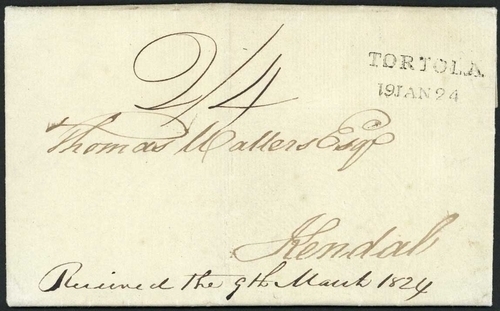 2/4
TORTOLA
19JAN24
Thomas Watters Esqr
Kendal
Received the 9th March 1824